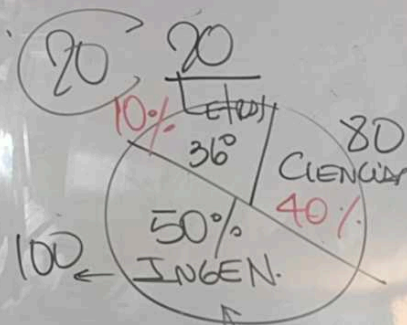 20 20
LETRAS
10%
36°
80
CIENCIAS
40%
50%
INGEN.
100